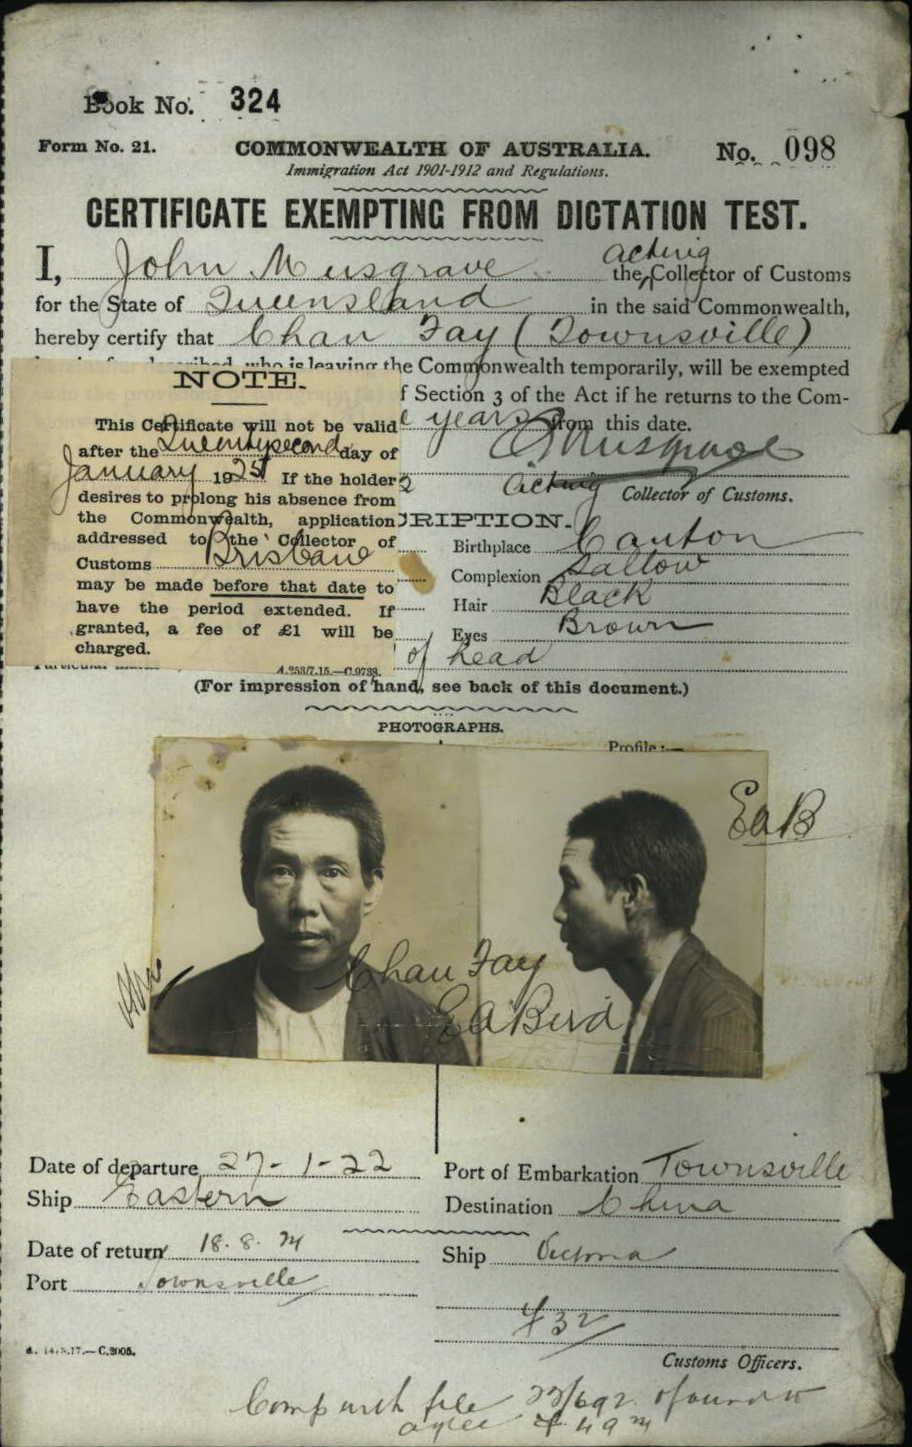 Book No. 324
Form No. 21.
COMMONWEALTH OF AUSTRALIA.
No. 098
Immigration Act 1901-1912 and Regulations.
CERTIFICATE EXEMPTING FROM DICTATION TEST.
I, John Musgrave the acting Collector of Customs
for the State of Queensland in the said Commonwealth,
hereby certify that Chan Fay (Townsville)
who is leaving the Commonwealth temporarily, will be exempted
f Section 3 of the Act if he returns to the Com-
e years from this date.
Musgrave
Acting Collector of Customs.
NOTE.
This Certificate will not be valid
after the Twentysecond day of
January 1925 If the holder
desires to prolong his absence from
the Commonwealth, application
addressed to the Collector of
Customs Brisbane
may be made before that date to
have the period extended. If
granted, a fee of £1 will be
charged.
A.253/7.15.—C.9738.
RIPTION.
Birthplace Canton
Complexion Sallow
Hair Black
Eyes Brown
of head
(For impression of hand, see back of this document.)
PHOTOGRAPHS.
Profile:—
EAB
Chan Fay
EA Bird
Date of departure 27-1-22
Port of Embarkation Townsville
Ship Eastern
Destination China
Date of return 18.8.24
Ship Victoria
Port Townsville
Customs Officers.
14.5.17.—C.3005.
Comp with file 22/692